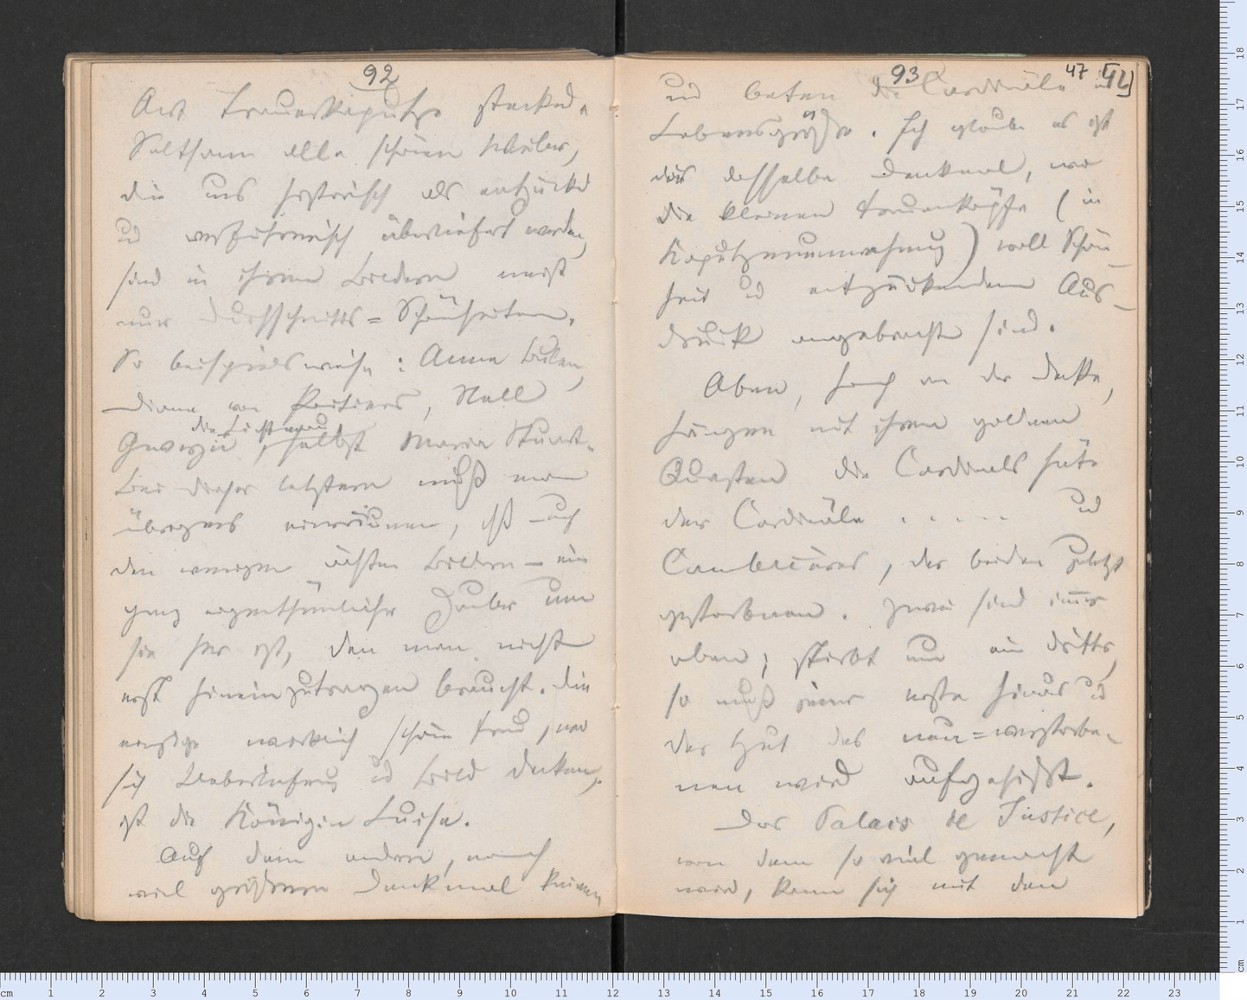 92
Aus Trauerkapuze steckend.
Seltsam alle schönen Weiber,
die uns historisch als entzückd
u verführerisch überliefert werden,
sind in ihren Bildern meist
nur Durchschnitts=Schönheiten.
So beispielsweise: Anna Bulen,
Diana von Poitiers, Nell
die Lichtenau
Gwynn, selbst Maria Stuart.
Bei dieser letztern muß man
übrigens einräumen, daß nach
den wenigen ächten Bildern – ein
ganz eigenthümlicher Zauber um
sie her ist, den man nicht
erst hineinzutragen braucht. Die
einzige wirklich schöne Frau, wo
sich Ueberliefrung u Bild decken,
ist die Königin Luise.
Auf dem andern, noch
viel größeren Denkmal knieen
93 47
und beten die Cardinäle in
Lebensgröße. Ich glaube es ist
das dasselbe Denkmal, wo
die kleinen Frauenköpfe (in
Kapuzenumrahmung) voll Schön-
heit u entzückendem Aus-
druck angebracht sind.
Oben, hoch an der Decke,
hängen mit ihren goldnen
Quasten die Cardinalshüte
der Cardinäle . . . . . u
Cambacérès, der beiden zuletzt
gestorbenen. Zwei sind immer
oben; stirbt nun ein dritter,
so muß jener erste hinaus u
der Hut des neu=verstorbe-
nen wird aufgehißt.
Das Palais de Justice,
von dem so viel gemacht
wird, kann sich mit den